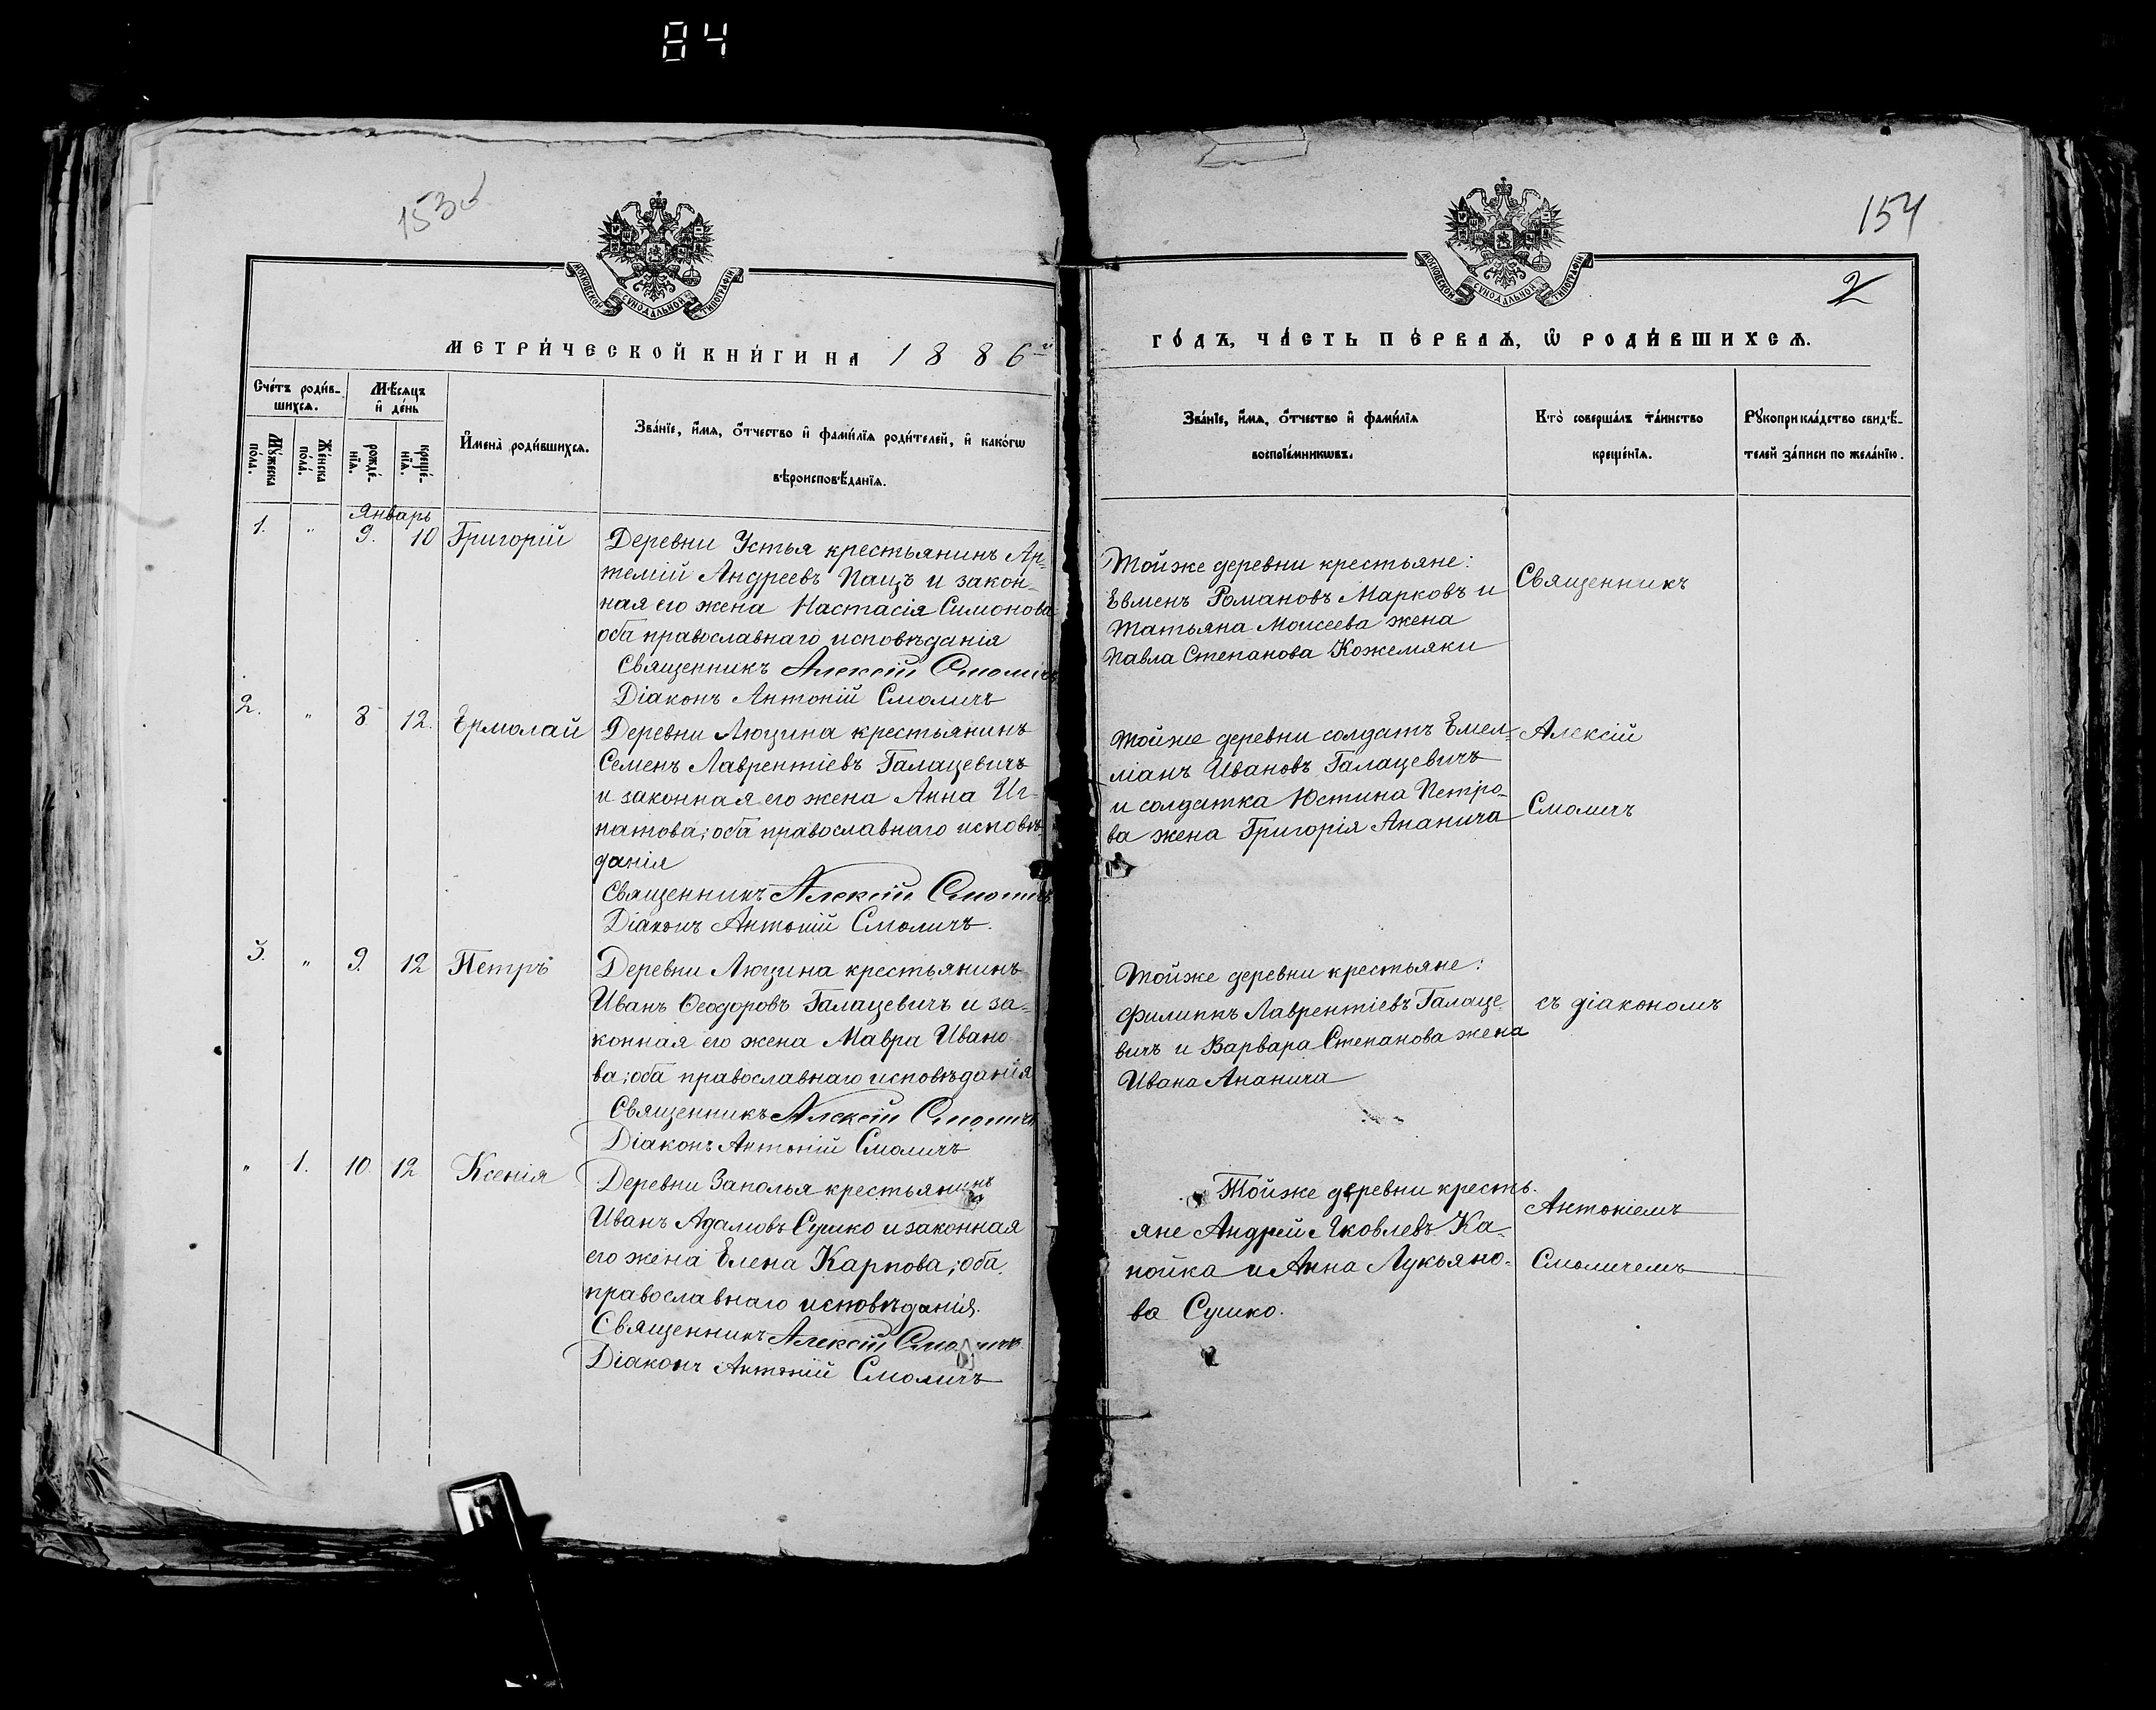 84
153об
МОСКОВСКОЙ СѴНОДАЛЬНОЙ ТИПОГРАФІИ
МЕТРИ́ЧЕСКОЙ КНИ́ГИ НА 1886й
Сче́тъ роди́в-
шихсѧ.
Мѣ́сѧцъ
и҆ де́нь
Мꙋ́жеска
по́ла.
Же́нска
по́ла.
рожде́-
нїѧ.
креще́-
нїѧ.
И҆мена̀ роди́вшихсѧ.
Зва́нїе, и҆́мѧ, ѻ҆́тчество и҆ фами́лїѧ роди́телей, и҆ како́гѡ
вѣроисповѣ́данїѧ.
Январь
1. " 9. 10 Григорій
Деревни Устья крестьянинъ Ар-
темій Андреевъ Пацъ и закон-
ная его жена Настасія Симонова
оба православнаго исповѣданія
Священникъ Алексій Смоличъ
Діаконъ Антоній Смоличъ
2. " 8 12. Ермолай
Деревни Люцина крестьянинъ
Семенъ Лаврентіевъ Галацевичъ
и законная его жена Анна Иг-
натова; оба православнаго исповѣ-
данія
Священникъ Алексій Смоличъ
Діаконъ Антоній Смоличъ.
3. " 9. 12 Петръ
Деревни Люцина крестьянинъ
Иванъ Ѳеодоровъ Галацевичъ и за-
конная его жена Мавра Ивано-
ва; оба православнаго исповѣданія
Священникъ Алексій Смоличъ
Діаконъ Антоній Смоличъ
" 1. 10. 12 Ксенія
Деревни Заполья крестьянинъ
Иванъ Адамовъ Сушко и законная
его жена Елена Карпова; оба
православнаго исповѣданія.
Священникъ Алексій Смоличъ
Діаконъ Антоній Смоличъ
154
2
МОСКОВСКОЙ СѴНОДАЛЬНОЙ ТИПОГРАФІИ
ГО́ДЪ, ЧА́СТЬ ПЕ́РВАѦ, Ѡ҆ РОДИ́ВШИХСѦ.
Зва́нїе, и҆́мѧ, ѻ҆́тчество и҆ фами́лїѧ
воспрїе́мникѡвъ.
Кто̀ соверша́лъ та́инство
креще́нїѧ.
Рꙋкоприкла́дство свидѣ́-
телей за́писи по жела́нїю.
Тойже деревни крестьяне:
Евменъ Романовъ Марковъ и
Татьяна Моисеева жена
Павла Степанова Кожемяки
Священникъ
Тойже деревни солдатъ Емел-
ліанъ Ивановъ Галацевичъ
и солдатка Юстина Петро-
ва жена Григорія Ананича
Алексій
Смоличъ
Тойже деревни крестьяне:
Филиппъ Лаврентіевъ Галаце-
вичъ и Варвара Степанова жена
Ивана Ананича
съ діакономъ
Тойже деревни кресть-
яне Андрей Яковлевъ Ка-
нойка и Анна Лукьяно-
ва Сушко.
Антоніемъ
Смоличемъ